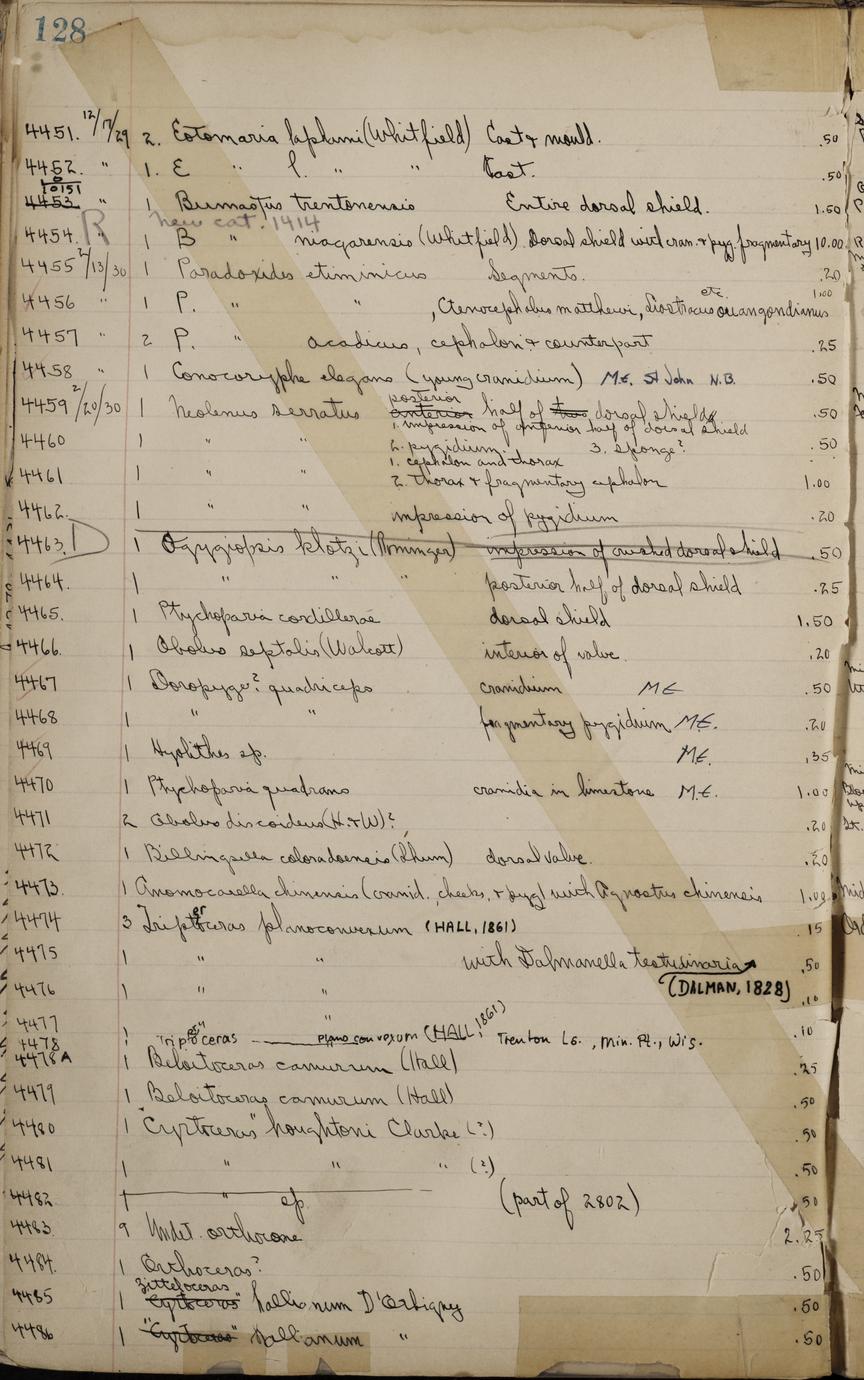 128
4451. 12/17/29 2. Eotomaria laphami (Whitfield) Cast & mould. .50
4452. " 1. E " l. " " Cast. .50
10151
4453 " 1 Bumastus trentonensis Entire dorsal shield. 1.50
R new cat. 1414
4454. " 1 B " niagarensis (Whitfield) Dorsal shield with cran. & pyg. fragmentary 10.00
4455 2/13/30 1 Paradoxides etiminicus Segments. .20
4456 " 1 P. " " , Ctenocephalus matthewi, Liostracus ouangondianus etc. 1.00
4457 " 2 P. " acadicus, cephalon & counterpart .25
4458 " 1 Conocoryphe elegans (young cranidium) M.E. St John N.B. .50
4459 2/20/30 1 Neolenus serratus anterior posterior half of dorsal shield .50
4460 1 " " 1. impression of anterior half of dorsal shield
2. pygidium. 3. sponge? .50
4461 1 " " 1. cephalon and thorax
2. thorax & fragmentary cephalon 1.00
4462. 1 " " impression of pygidium .20
4463. D 1 Ogygiopsis klotzi (Rominger) impression of crushed dorsal shield .50
4464. 1 " " " posterior half of dorsal shield .25
4465. 1 Ptychoparia cordillerae dorsal shield 1.50
4466. 1 Obolus septalis (Walcott) interior of valve. .20
4467 1 Doropyge? quadriceps cranidium M E .50
4468 1 " " fragmentary pygidium M.E. .20
4469 1 Hyolithes sp. M.E. .35
4470 1 Ptychoparia quadrans cranidia in limestone M.E. 1.00
4471 2 Obolus discoideus (H. & W)? .20
4472 1 Billingsella coloradoensis (Shum) dorsal valve. .20
4473. 1 Anomocarella chinensis (cranid. cheeks, & pyg) with Agnostus chinensis 1.00
4474 3 Tripteroceras planoconvexum (HALL, 1861) .15
4475 1 " " with Dalmanella testudinaria .50
4476 1 " " (DALMAN, 1828) .10
4477 1 " " .10
4478 1 Tripteroceras plano convexum (HALL, 1861) Trenton Ls., Min. Pt., Wis.
4478A 1 Beloitoceras camurum (Hall) .25
4479 1 Beloitoceras camurum (Hall) .50
4480 1 "Cyrtoceras" houghtoni Clarke (?) .50
4481 1 " " " (?) .50
4482 1 " sp. (part of 2802) .50
4483 9 Undet. orthocone 2.25
4484. 1 Orthoceras? .50
Zitteloceras
4485 1 "Cyrtoceras" hallianum D'Orbigny .50
4486 1 "Cyrtoceras" hallianum " .50